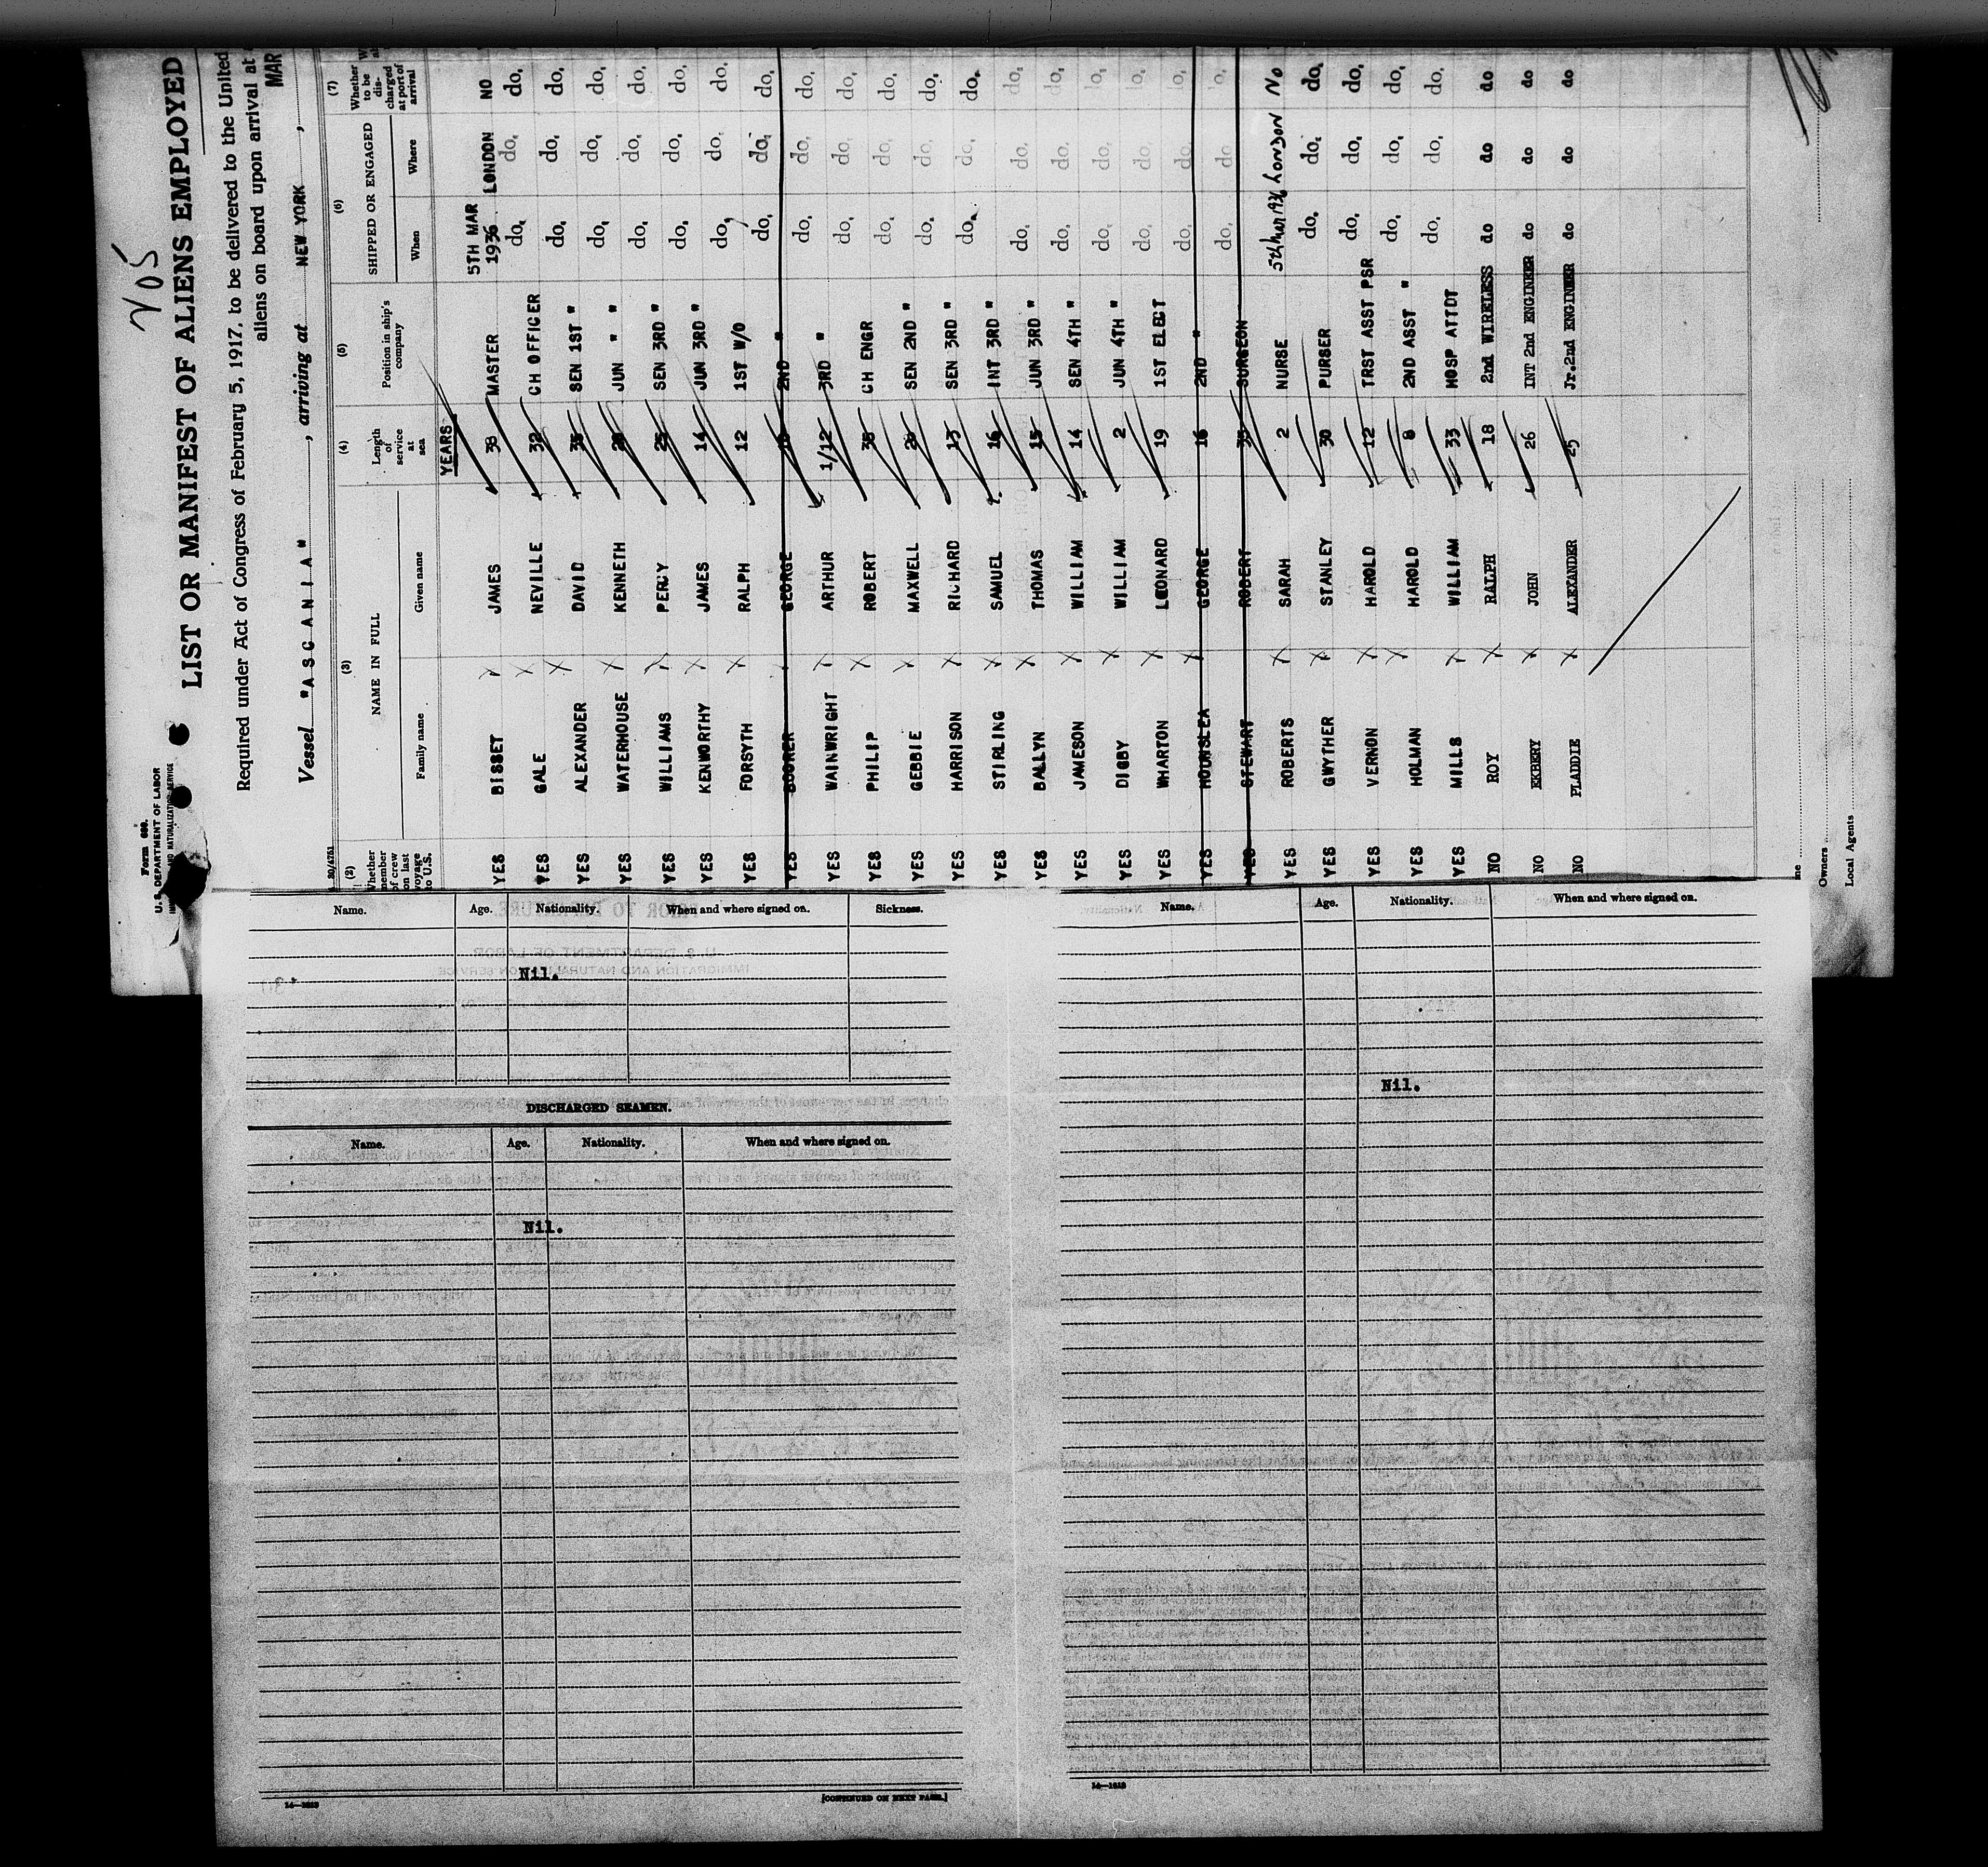 205
Form 689.
U. S. DEPARTMENT OF LABOR
LIST OR MANIFEST OF ALIENS EMPLOYED
Required under Act of Congress of February 5, 1917, to be delivered to the United
aliens on board upon arrival at
MAR
Vessel "ASCANIA", arriving at NEW YORK,
(2) (3) (4) (5) (6) (7)
Whether member of crew on last voyage to U.S. NAME IN FULL Length of service at sea Position in ship's company SHIPPED OR ENGAGED Whether to be discharged at port of arrival
Family name Given name When Where
YEARS
YES BISSET JAMES 38 MASTER 5TH MAR 1936 LONDON NO
YES GALE NEVILLE 32 CH OFFICER do. do. do.
YES ALEXANDER DAVID SEN 1ST " do. do. do.
YES WATERHOUSE KENNETH JUN " " do. do. do.
YES WILLIAMS PERCY 25 SEN 3RD " do. do. do.
YES KENWORTHY JAMES 14 JUN 3RD " do. do. do.
YES FORSYTH RALPH 12 1ST W/O do. do. do.
YES BOORER GEORGE 2ND " do. do. do.
YES WAINWRIGHT ARTHUR 1/12 3RD " do. do. do.
YES PHILIP ROBERT CH ENGR do. do. do.
YES GEBBIE MAXWELL SEN 2ND " do. do. do.
YES HARRISON RICHARD 13 SEN 3RD " do. do. do.
YES STIRLING SAMUEL 16 INT 3RD " do. do. do.
YES BALLYN THOMAS 15 JUN 3RD " do. do. do.
YES JAMESON WILLIAM 14 SEN 4TH " do. do. do.
YES DIGBY WILLIAM 2 JUN 4TH " do. do. do.
YES WHARTON LEONARD 19 1ST ELECT do. do. do.
YES HOUNSLEA GEORGE 16 2ND " do. do. do.
YES STEWART ROBERT 35 SURGEON
YES ROBERTS SARAH 2 NURSE 5th Mar 1936 London No
YES GWYTHER STANLEY 30 PURSER do. do. do.
YES VERNON HAROLD 12 TRST ASST PSR do. do. do.
YES HOLMAN HAROLD 8 2ND ASST " do. do. do.
YES MILLS WILLIAM 33 HOSP ATTDT do. do. do.
NO ROY RALPH 18 2nd WIRELESS do do do
NO EKBERY JOHN 26 INT 2nd ENGINEER do do do
NO PLADDIE ALEXANDER 25 Jr.2nd ENGINEER do do do
Owners
Local Agents
Name. Age. Nationality. When and where signed on. Sickness.
Nil.
DISCHARGED SEAMEN.
Name. Age. Nationality. When and where signed on.
Nil.
[CONTINUED ON NEXT PAGE.]
Name. Age. Nationality. When and where signed on.
Nil.